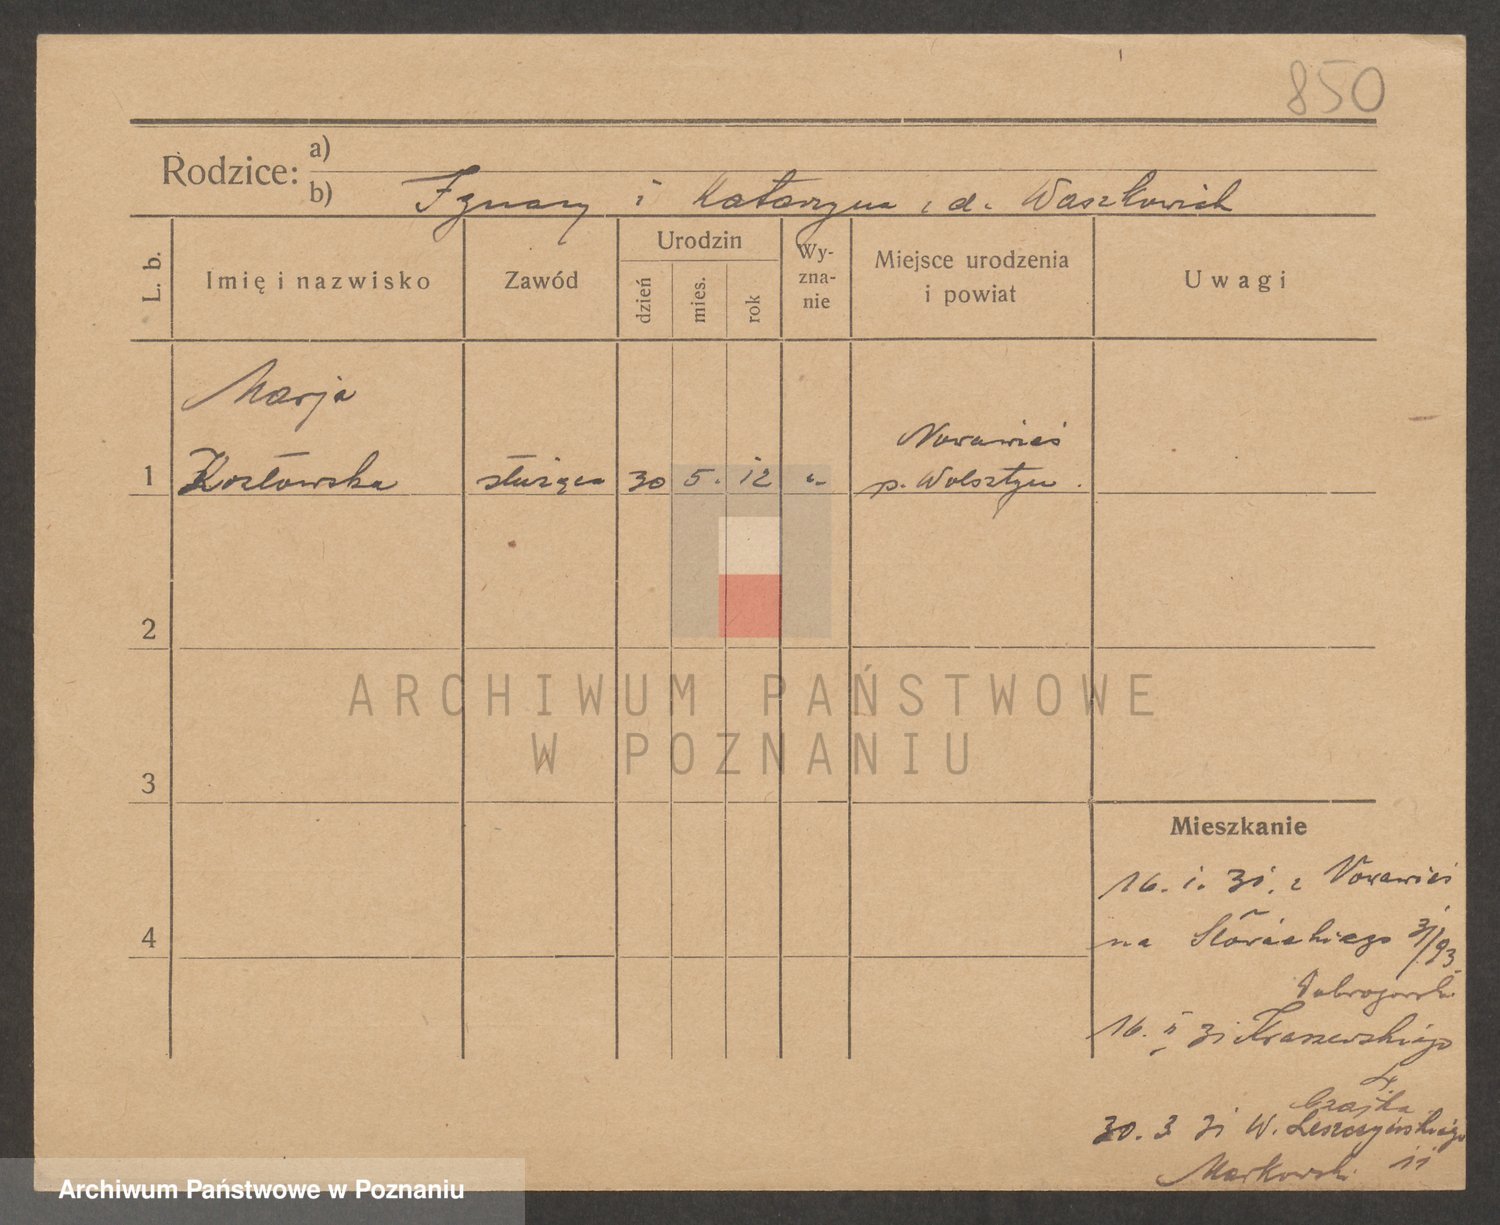 850
Rodzice:
a)
b) Ignacy i Katarzyna z d. Waszkowiak
L. b.
Imię i nazwisko
Zawód
Urodzin
dzień
mies.
rok
Wy-
zna-
nie
Miejsce urodzenia
i powiat
Uwagi
Marja
1 Kozłowska służąca 30 5. 12 "
Nowawieś
p. Wolsztyn.
2
3
4
ARCHIWUM PAŃSTWOWE
W POZNANIU
Mieszkanie
16. 1. 31. z Nowawieś
na Słowackiego 31/93
Dobrogowski
16. II 31 Kraszewskiego
4.
Czajka
30. 3 31 W. Leszczyńskiego
Markowski 11
Archiwum Państwowe w Poznaniu